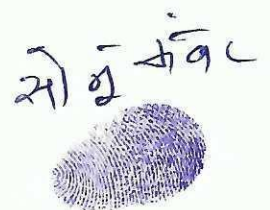 सोनु कंवर